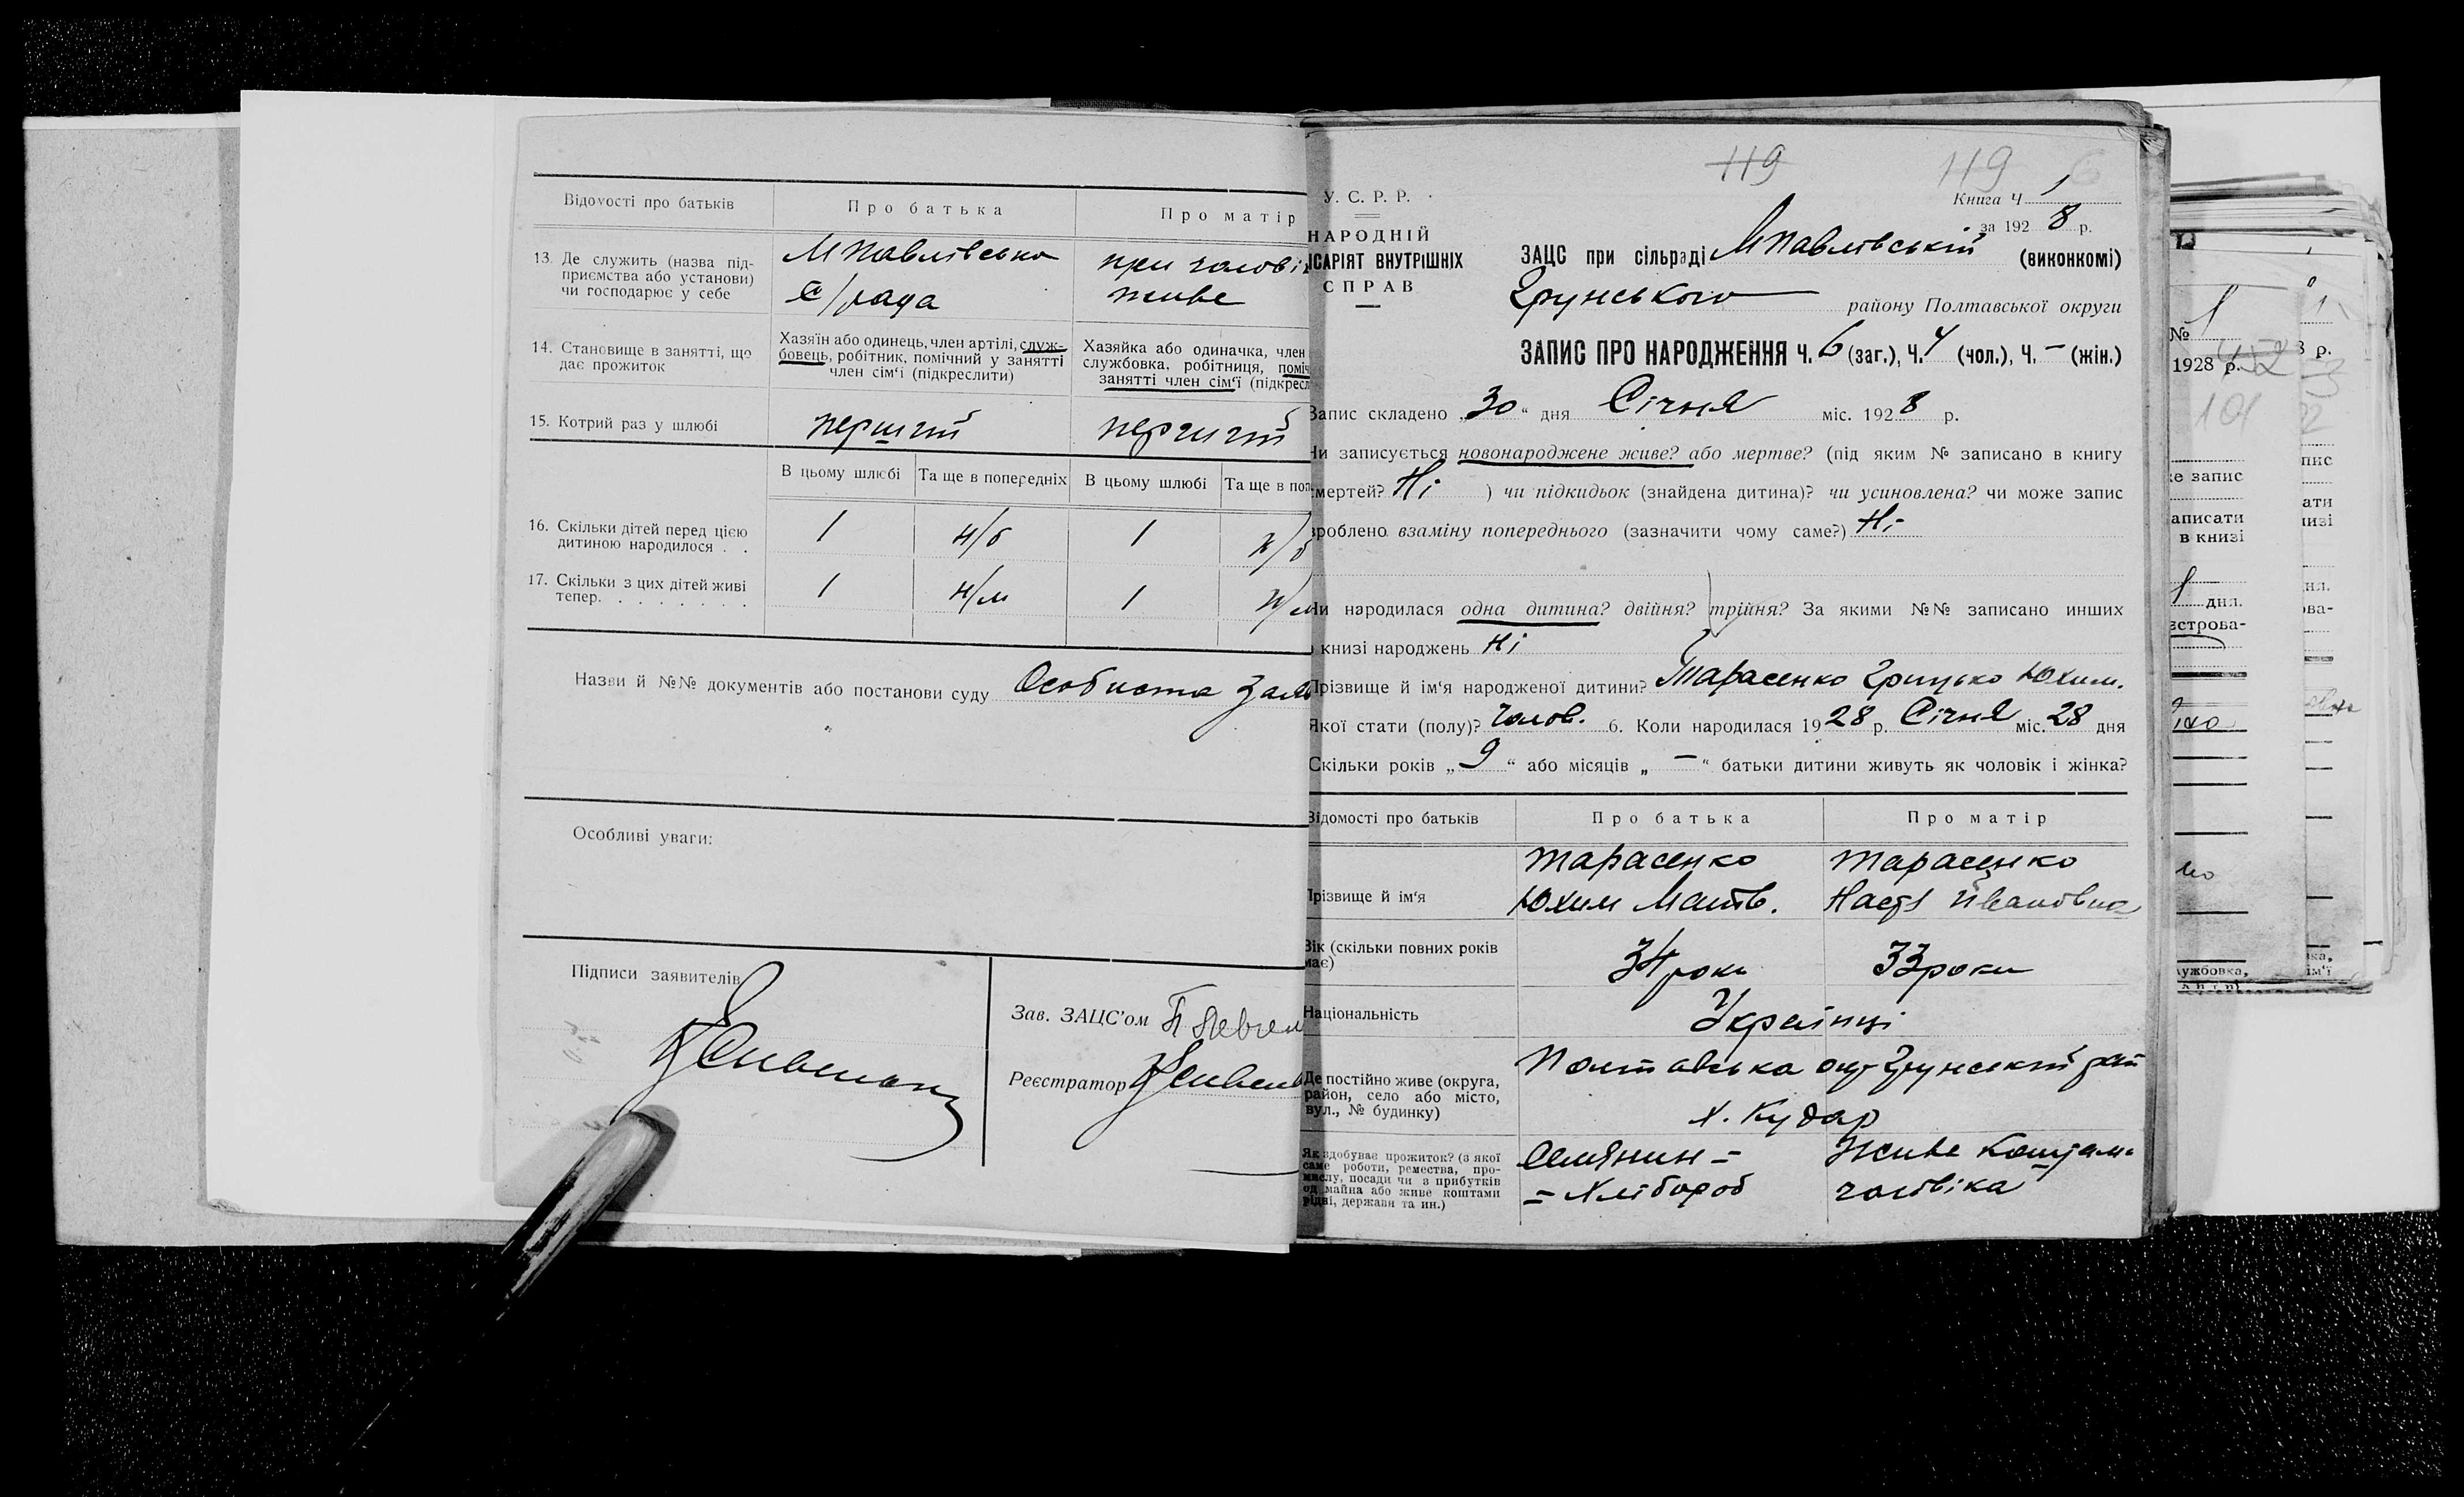 Відомості про батьків
Про батька
Про матір
13. Де служить (назва під-
приємства або установи)
чи господарює у себе
МПавлівська
С/рада
при чолові
живе
14. Становище в занятті, що
дає прожиток
Хазяїн або одинець, член артілі, служ-
бовець, робітник, помічний у занятті
член сім'ї (підкреслити)
Хазяйка або одиначка, член
службовка, робітниця, поміч
занятті член сім'ї (підкресл
15. Котрий раз у шлюбі
перший
перший
В цьому шлюбі
Та ще в попередніх
В цьому шлюбі
Та ще в поп
16. Скільки дітей перед цією
дитиною народилося . .
1
н/б
1
н/б
17. Скільки з цих дітей живі
тепер. . . . . . . .
1
н/м
1
н/м
Назви й №№ документів або постанови суду Особиста Заяв
Особливі уваги:
Підписи заявителів
Зав. ЗАЦС'ом
Реєстратор
119
119
У. С. Р. Р.
НАРОДНІЙ
ІСАРІЯТ ВНУТРІШНІХ
СПРАВ
Книга Ч 1
за 1928 р.
ЗАЦС при сільраді МПавлівській (виконкомі)
Грунського району Полтавської округи
ЗАПИС ПРО НАРОДЖЕННЯ Ч. 6 (заг.), Ч. 4 (чол.), Ч. – (жін.)
Запис складено „30“ дня Січня міс. 1928 р.
Чи записується новонароджене живе? або мертве? (під яким № записано в книгу
смертей? Ні ) чи підкидьок (знайдена дитина)? чи усиновлена? чи може запис
зроблено взаміну попереднього (зазначити чому саме?) Ні
Чи народилася одна дитина? двійня? трійня? За якими №№ записано инших
книзі народжень Ні
Прізвище й ім'я народженої дитини? Тарасенко Грицько Юхим.
Якої стати (полу)? Чолов. 6. Коли народилася 1928 р. Січня міс. 28 дня
Скільки років „9“ або місяців „–“ батьки дитини живуть як чоловік і жінка?
Відомості про батьків
Про батька
Про матір
Прізвище й ім'я
Тарасенко
Юхим Матв.
Тарасенко
Настя Івановна
Вік (скільки повних років
має)
34 роки
33 роки
Національність
Українці
Де постійно живе (округа,
район, село або місто,
вул., № будинку)
Полтавська окр Грунський рай
х. Кудар
Як здобуває прожиток? (з якої
саме роботи, ремества, про-
мислу, посади чи з прибутків
од майна або живе коштами
рідні, держави та ин.)
Селянин =
= Хлібороб
Живе коштам.
чоловіка
№ 1
1928 р.
101
е запис
аписати
в книзі
дня.
естрова-
ужбовка,